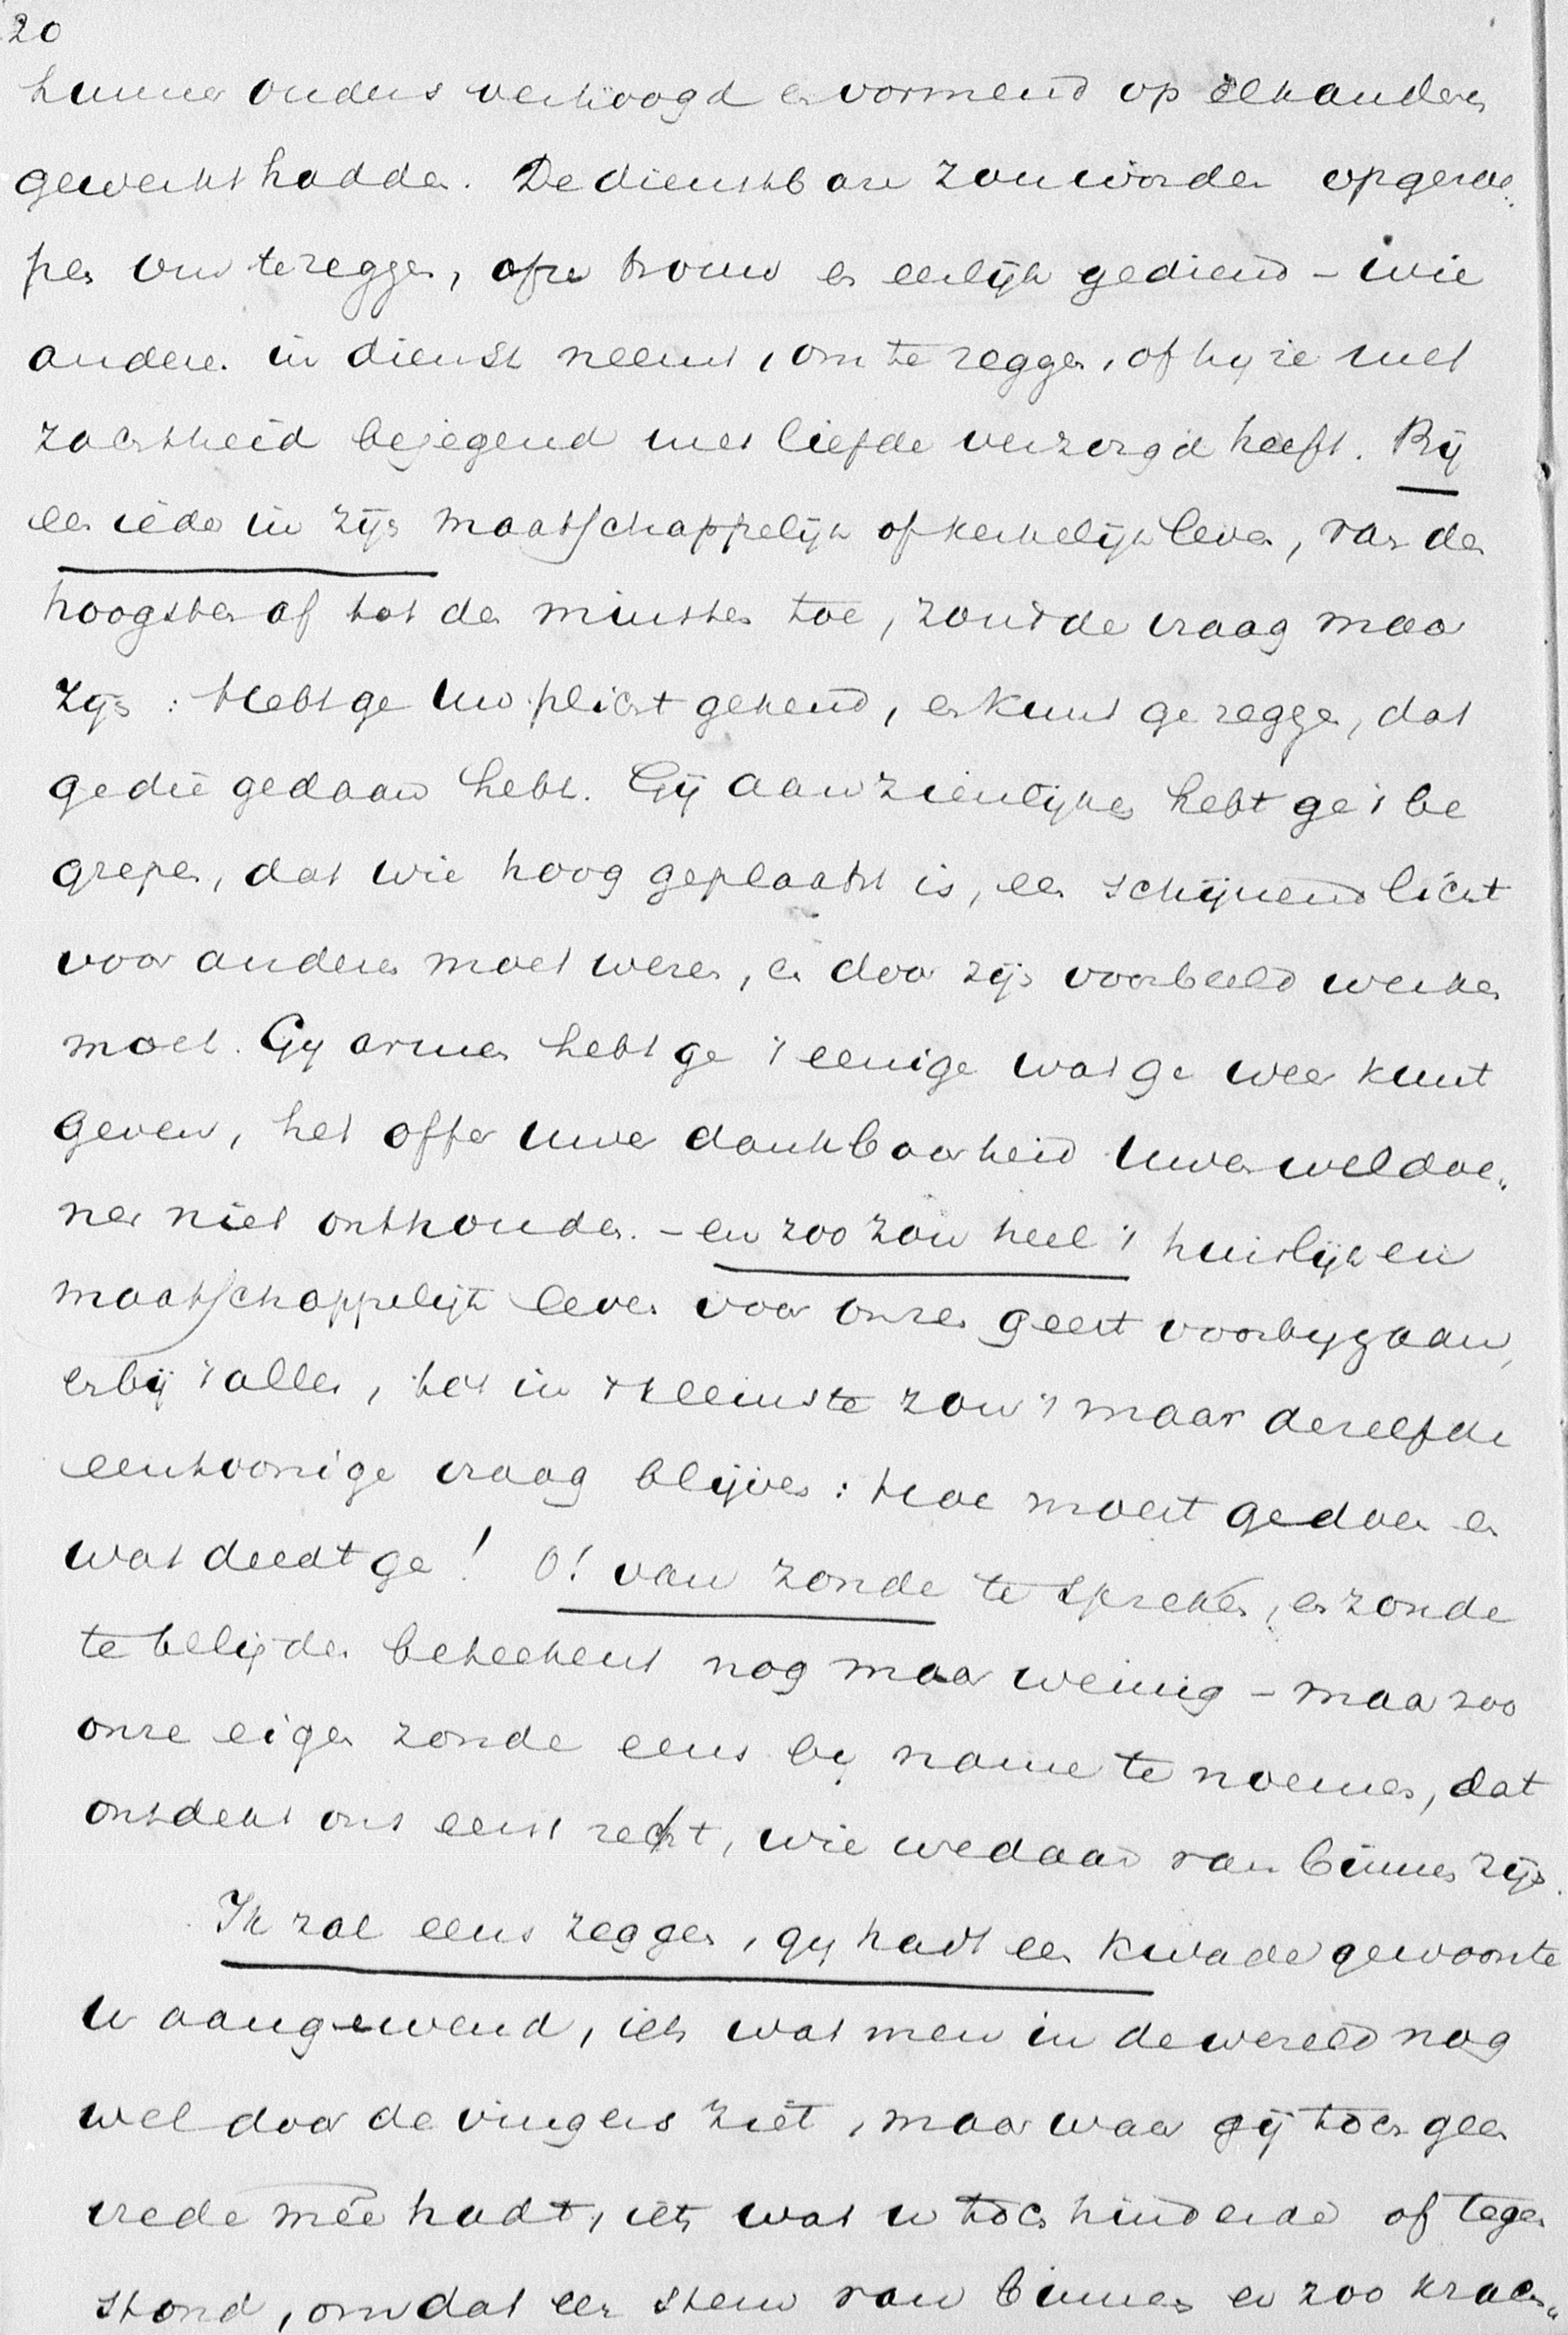 20
hunner ouders verhoogd en vormend op elkander
gewerkt hadden. De dienstbare zou worden opgeroe„
pen om te zeggen, of ze trouw en eerlijk gediend – wie
anderen in dienst neemt, om te zeggen, of hij ze met
zachtheid bejegend met liefde verzorgd heeft. Bij
een ieder in zijn maatschappelijk of kerkelijk leven, van den
hoogsten af tot den minsten toe, zou 't de vraag maar
zijn: Hebt ge Uw plicht gekend, en kunt ge zeggen, dat
ge die gedaan hebt. Gij aanzienlijken hebt ge 't be
grepen, dat wie hoog geplaatst is, een schijnend licht
voor anderen moet wezen, en door zijn voorbeeld werken
moet. Gij armen hebt ge 't eenige wat ge weer kunt
geven, het offer uwer dankbaarheid Uwen weldoe„
ner niet onthouden. – en zoo zou heel 't huislijk en
maatschappelijk leven voor onzen geest voorbijgaan,
en bij 't alles, tot in 't kleinste zou 't maar dezelfde
eentoonige vraag blijven: Hoe moest ge doen en
wat deedt ge! O! van zonde te spreken, en zonde
te belijden beteekent nog maar weinig – maar zoo
onze eigen zonde eens bij name te noemen, dat
ontdekt ons eerst recht, wie we daar van binnen zijn.
Ik zal eens zeggen, gij hadt een kwade gewoonte
U aangewend, iets wat men in de wereld nog
wel door de vingers ziet, maar waar gij toch geen
vrede mêe hadt, iets wat u toch hinderde of tegen
stond, omdat een stem van binnen er zoo krach„